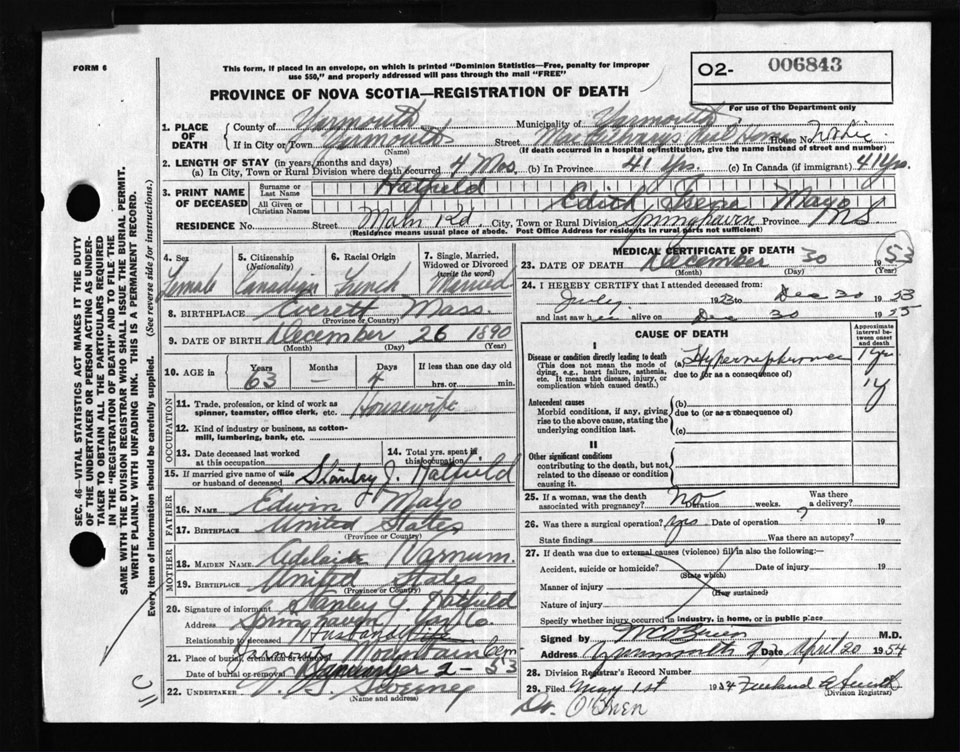 FORM 6
This form, if placed in an envelope, on which is printed "Dominion Statistics—Free, penalty for improper
use $50," and properly addressed will pass through the mail "FREE"
O2- 006843
PROVINCE OF NOVA SCOTIA—REGISTRATION OF DEATH
For use of the Department only
1. PLACE OF DEATH
County of Yarmouth Municipality of Yarmouth
If in City or Town Yarmouth Street House No.
(Name) (If death occurred in a hospital or institution, give the name instead of street and number)
2. LENGTH OF STAY (in years, months and days)
(a) In City, Town or Rural Division where death occurred 4 Mos. (b) In Province 41 Yrs. (c) In Canada (if immigrant) 41 Yrs.
3. PRINT NAME OF DECEASED
Surname or Last Name Hatfield
All Given or Christian Names Edith Mayo
RESIDENCE No. Street Main Rd. City, Town or Rural Division Springhaven Province N.S.
(Residence means usual place of abode. Post Office Address for residents in rural parts not sufficient)
4. Sex Female
5. Citizenship (Nationality) Canadian
6. Racial Origin French
7. Single, Married, Widowed or Divorced (write the word) Married
8. BIRTHPLACE Everett Mass.
(Province or Country)
9. DATE OF BIRTH December 26 1890
(Month) (Day) (Year)
10. AGE in Years 63 Months — Days 4 If less than one day old
hrs. or min.
OCCUPATION
11. Trade, profession, or kind of work as spinner, teamster, office clerk, etc. Housewife
12. Kind of industry or business, as cotton-mill, lumbering, bank, etc.
13. Date deceased last worked at this occupation
14. Total yrs. spent in this occupation
15. If married give name of wife or husband of deceased Stanley J. Hatfield
FATHER
16. Name Edwin Mayo
17. Birthplace United States
(Province or Country)
MOTHER
18. MAIDEN NAME Adelaide Varnum
19. BIRTHPLACE United States
(Province or Country)
20. Signature of informant Stanley J. Hatfield
Address Springhaven Yar. Co.
Relationship to deceased Husband
21. Place of burial, cremation or removal Mountain Cem
Date of burial or removal 2 - 53
22. UNDERTAKER V. S. Sweeney
(Name and address)
MEDICAL CERTIFICATE OF DEATH
23. DATE OF DEATH December 30 53
(Month) (Day) (Year)
24. I HEREBY CERTIFY that I attended deceased from:
July 1953 to Dec 30 1953
and last saw her alive on Dec 30 19
CAUSE OF DEATH
Approximate interval between onset and death
I
Disease or condition directly leading to death
(This does not mean the mode of dying, e.g., heart failure, asthenia, etc. It means the disease, injury, or complication which caused death.)
(a) Hypernephroma 1 yr.
due to (or as a consequence of)
Antecedent causes
Morbid conditions, if any, giving rise to the above cause, stating the underlying condition last.
(b)
due to (or as a consequence of)
(c)
II
Other significant conditions
contributing to the death, but not related to the disease or condition causing it.
25. If a woman, was the death associated with pregnancy? No Duration weeks. Was there a delivery?
26. Was there a surgical operation? yes Date of operation ? 19
State findings Was there an autopsy?
27. If death was due to external causes (violence) fill in also the following:
Accident, suicide or homicide? Date of injury 19
(State which)
Manner of injury
(How sustained)
Nature of injury
Specify whether injury occurred in industry, in home, or in public place
Signed by M.D.
Address Yarmouth Date April 20 1954
28. Division Registrar's Record Number
29. Filed May 1st 1954
(Division Registrar)
Dr. O'Brien
SEC. 46—VITAL STATISTICS ACT MAKES IT THE DUTY
OF THE UNDERTAKER OR PERSON ACTING AS UNDER-
TAKER TO OBTAIN ALL THE PARTICULARS REQUIRED
IN THE "REGISTRATION OF DEATH" AND TO FILE THE
SAME WITH THE DIVISION REGISTRAR WHO SHALL ISSUE THE BURIAL PERMIT.
WRITE PLAINLY WITH UNFADING INK. THIS IS A PERMANENT RECORD.
Every item of information should be carefully supplied. (See reverse side for instructions.)